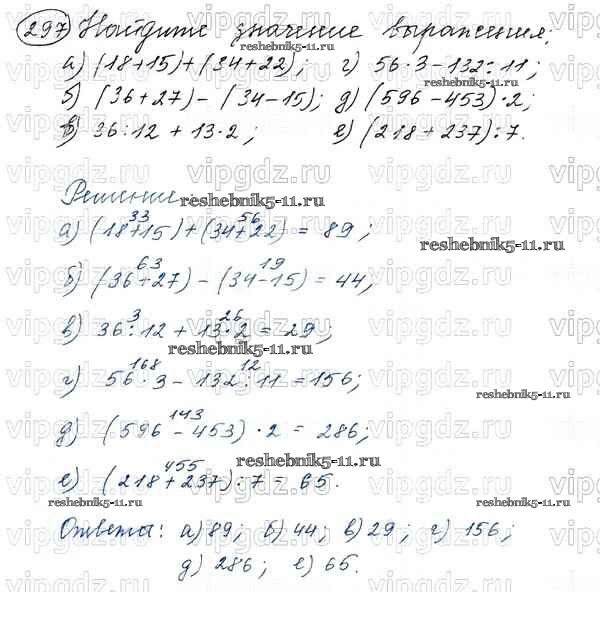 297 Найдите значение выражения:
а) (18+15)+(34+22); г) 56·3-132:11;
б) (36+27)-(34-15); д) (596-453)·2;
в) 36:12+13·2; е) (218+237):7.
Решение
33 56
а) (18+15)+(34+22)=89;
63 19
б) (36+27)-(34-15)=44;
3 26
в) 36:12+13·2=29;
168 12
г) 56·3-132:11=156;
143
д) (596-453)·2=286;
455
е) (218+237):7=65.
Ответы: а) 89; б) 44; в) 29; г) 156;
д) 286; е) 65.
vipgdz.ru
reshebnik5-11.ru